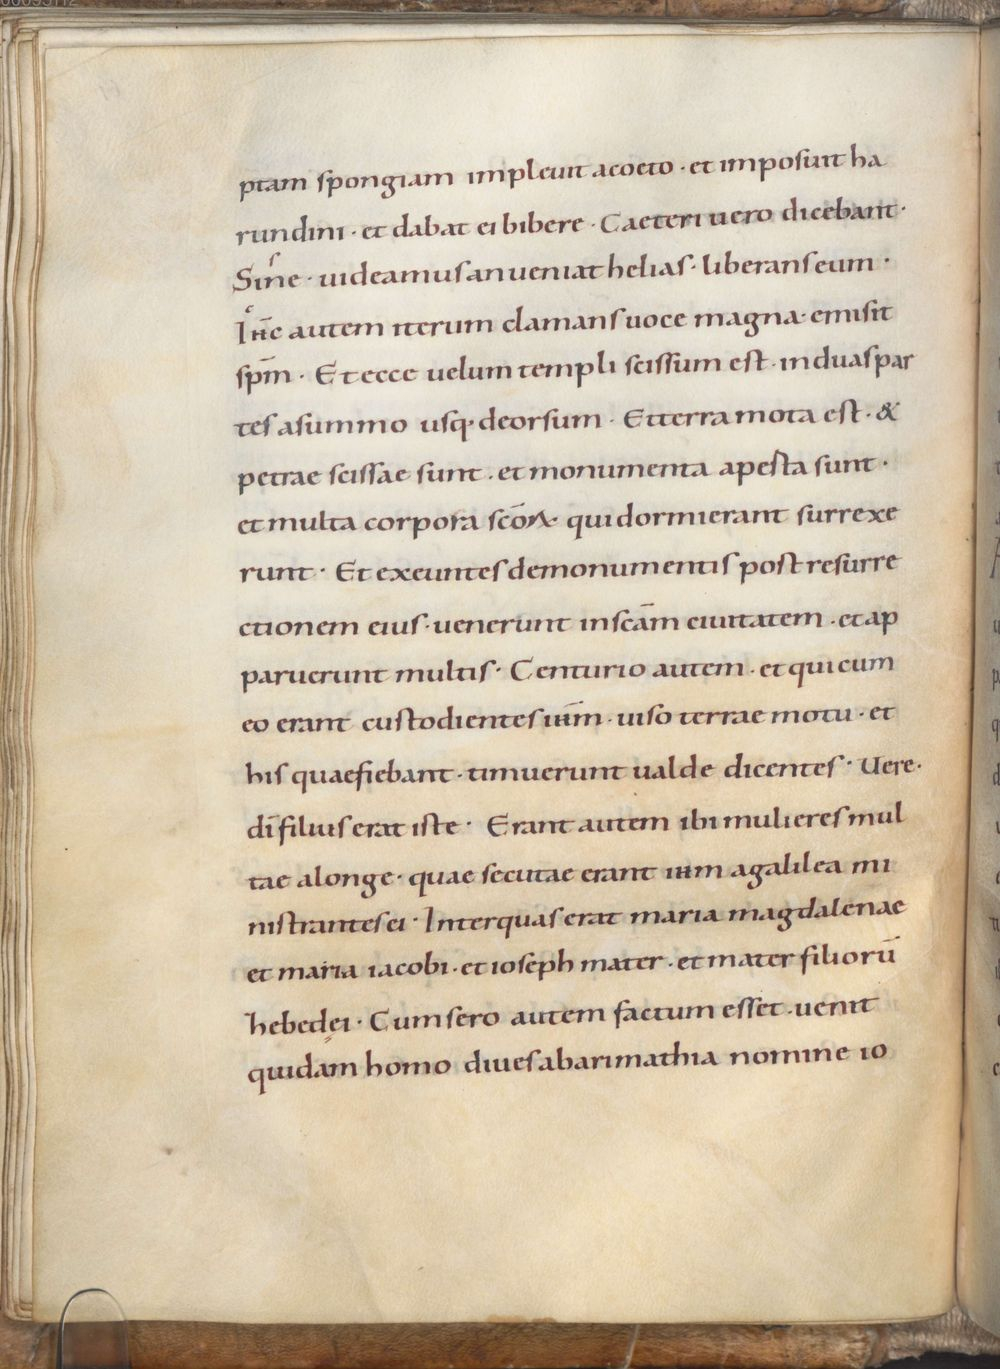 ptam spongiam impleuit acoeto · et imposuit ha
rundini · et dabat ei bibere · Caeteri uero dicebant ·
Sine · uideamus an ueniat helias · liberans eum ·
Ihc̄ autem iterum clamans uoce magna · emisit
sp̄m · Et ecce uelum templi scissum est · in duas par
tes a summo usq· deorsum · Et terra mota est · &
petrae scissae sunt · et monumenta aperta sunt ·
et multa corpora scōꝝ · qui dormierant surrexe
runt · Et exeuntes de monumentis post resurre
ctionem eius · uenerunt in scām ciuitatem · et ap
paruerunt multis · Centurio autem · et qui cum
eo erant custodientes ihm̄ · uiso terrae motu · et
his quae fiebant · timuerunt ualde dicentes · Uere ·
dī filius erat iste · Erant autem ibi mulieres mul
tae a longe · quae secutae erant ihm a galilea mi
nistrantes ei · Inter quas erat maria magdalenae
et maria iacobi · et ioseph mater · et mater filiorū
hebedei · Cum sero autem factum esset · uenit
quidam homo diues ab arimathia nomine io